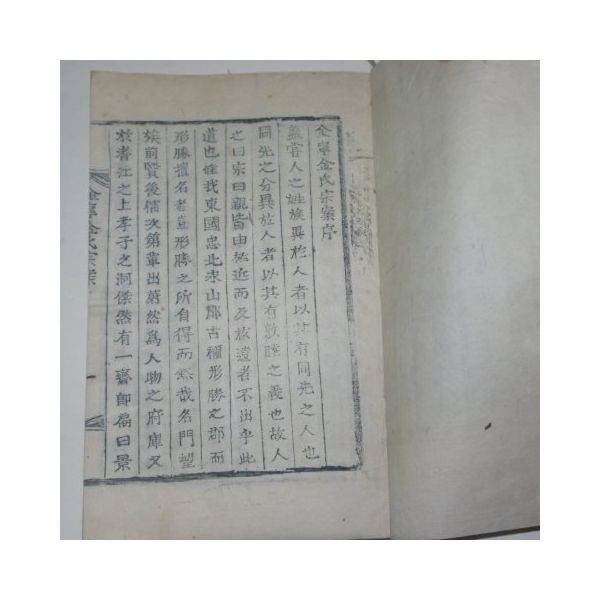 金寧金氏宗案序
蓋嘗人之姓族異於人者以其有同先之人也
同先之分異於人者以其有敦睦之義也故人
之曰宗曰親皆由於近而及於遠者不出乎此
道也惟我東國忠北永山郡古稱形勝之郡而
形勝擅名者豈形勝之所自得而然哉名門望
族前賢後儒次第輩出蔚然爲人物之府庫又
於耆江之上孝子之洞傑然有一齋卽扁曰景
金寧金氏宗案
一